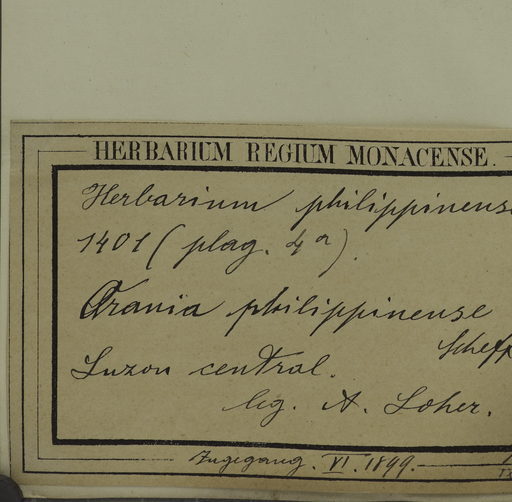 HERBARIUM REGIUM MONACENSE.
Herbarium philippinense
1401 (plag. 4a).
Orania philippinense
Scheff
Luzon central.
leg. A. Loher.
Zugegang. VI. 1899.